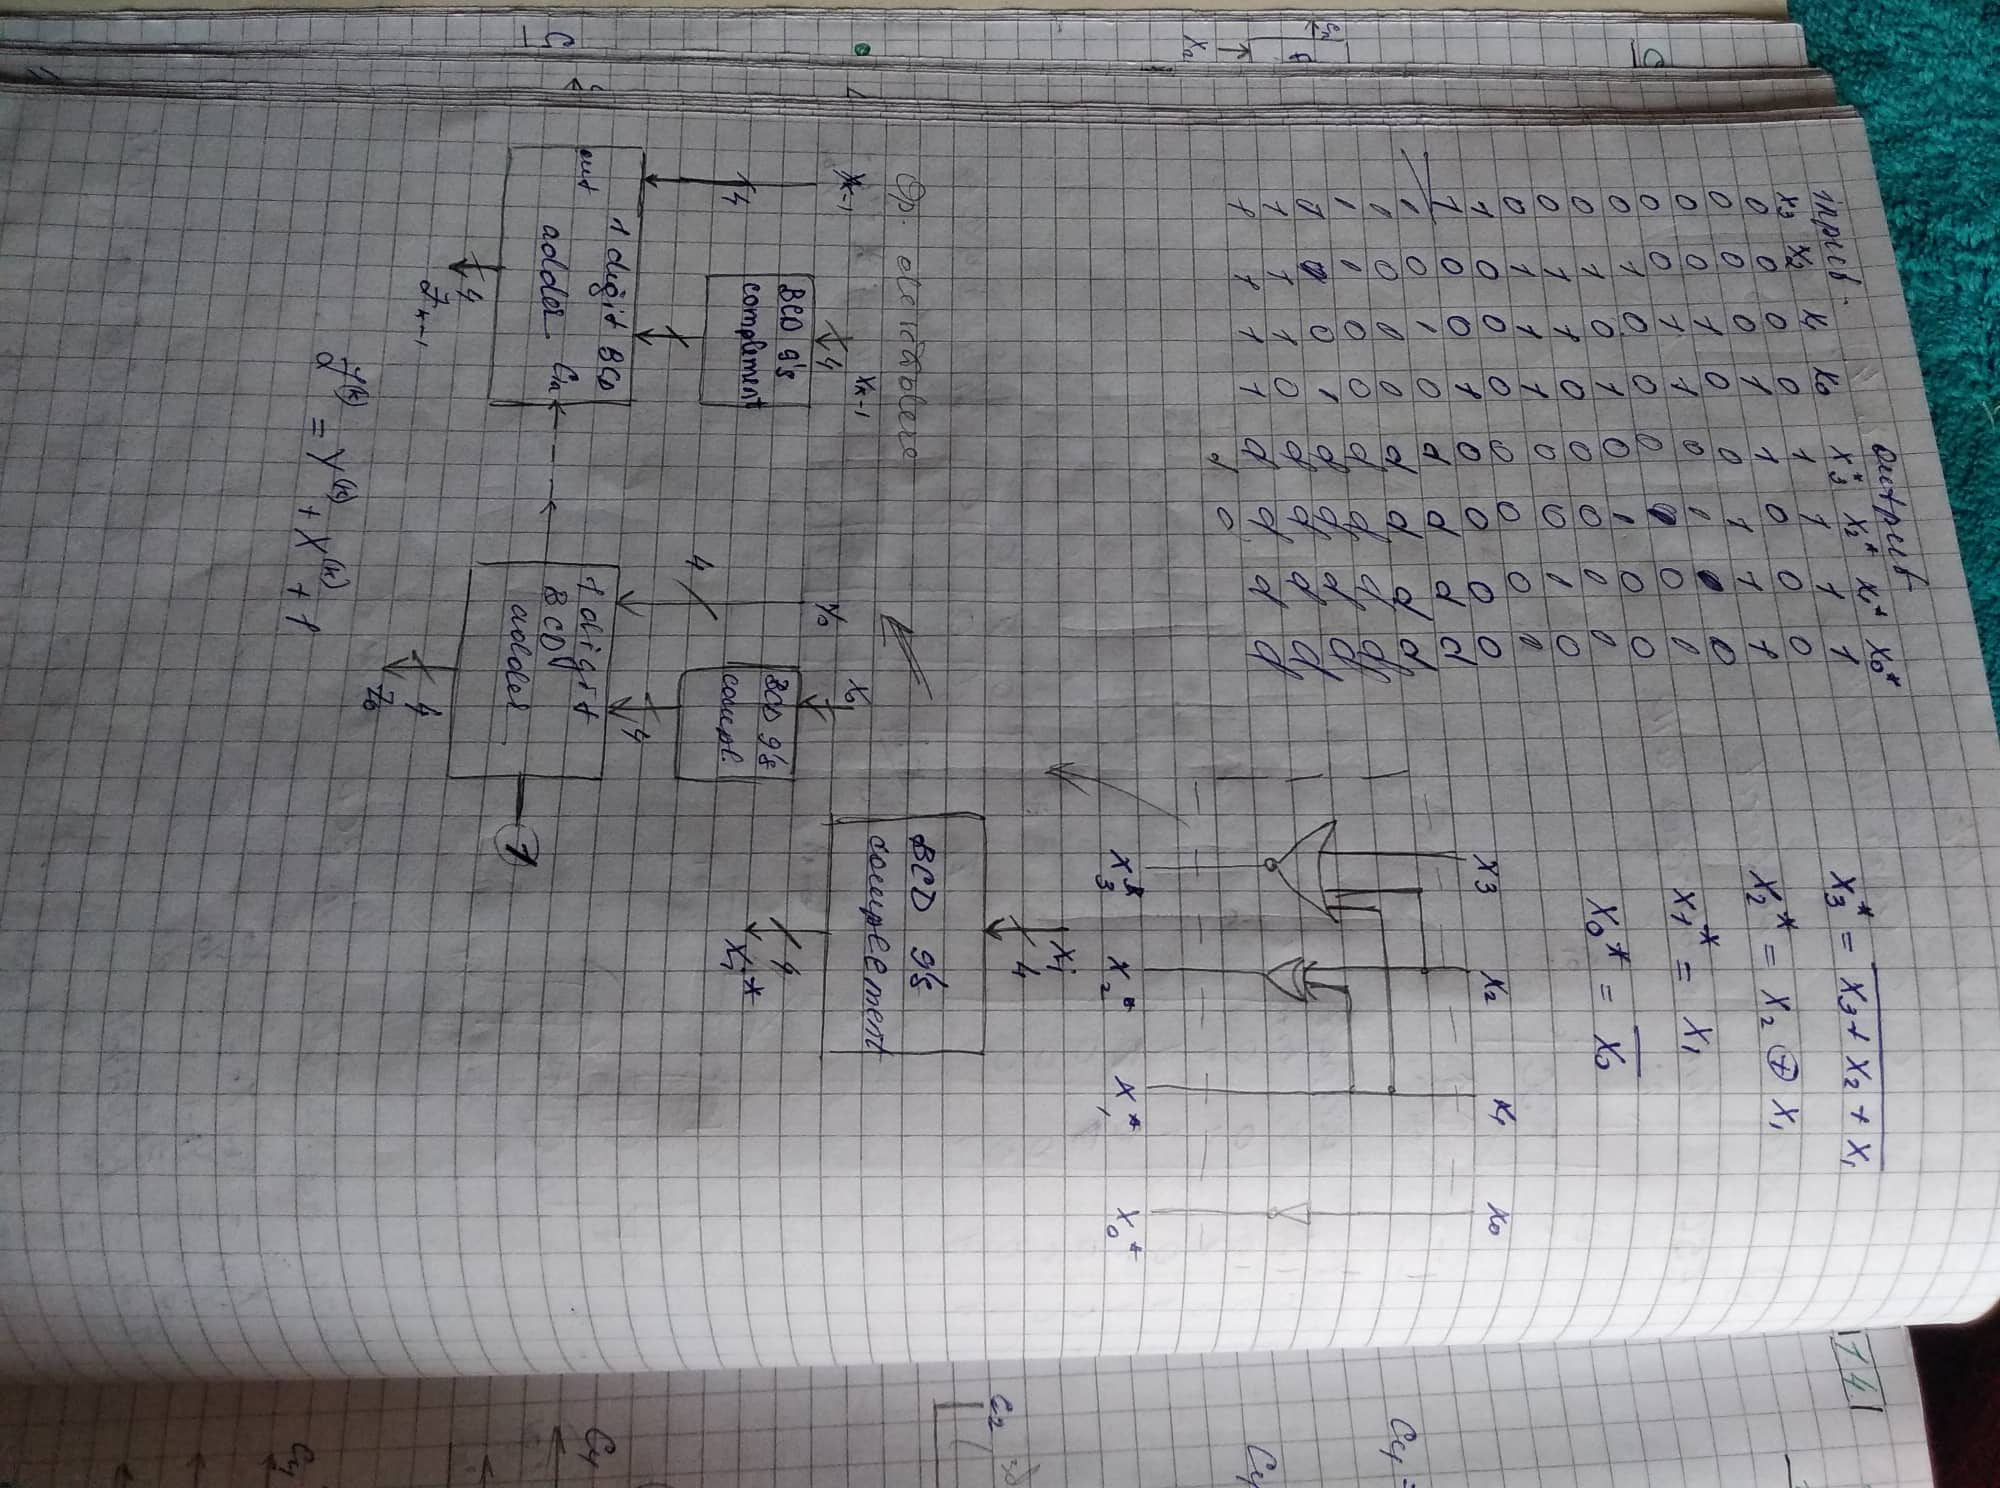 input output
x3 x2 x1 x0 x3* x2* x1* x0*
0 0 0 0 1 1 1 1
0 0 0 1 1 0 0 0
0 0 1 0 0 1 1 1
0 0 1 1 0 1 1 0
0 1 0 0 0 1 0 1
0 1 0 1 0 1 0 0
0 1 1 0 0 0 1 1
0 1 1 1 0 0 1 0
1 0 0 0 0 0 0 1
1 0 0 1 0 0 0 0
1 0 1 0 d d d d
1 0 1 0 d d d d
1 1 0 0 d d d d
1 1 0 1 d d d d
1 1 1 0 d d d d
1 1 1 1 d d d d
X3* = X3 + X2 + X1
X2* = X2 ⊕ X1
X1* = X1
X0* = X0
X3 X2 X1 X0
X3* X2* X1* X0*
Xi 4
BCD 9's
complement
4 Xi*
Xk-1 Y0 X0
4 4 4
BCD 9's
complement
BCD 9's
compl.
4
out 1 digit BCD
adder Cin
1 digit
BCD
adder
1
4 Zk-1
4 Z0
= Y(k) + X(k) + 1
14.1